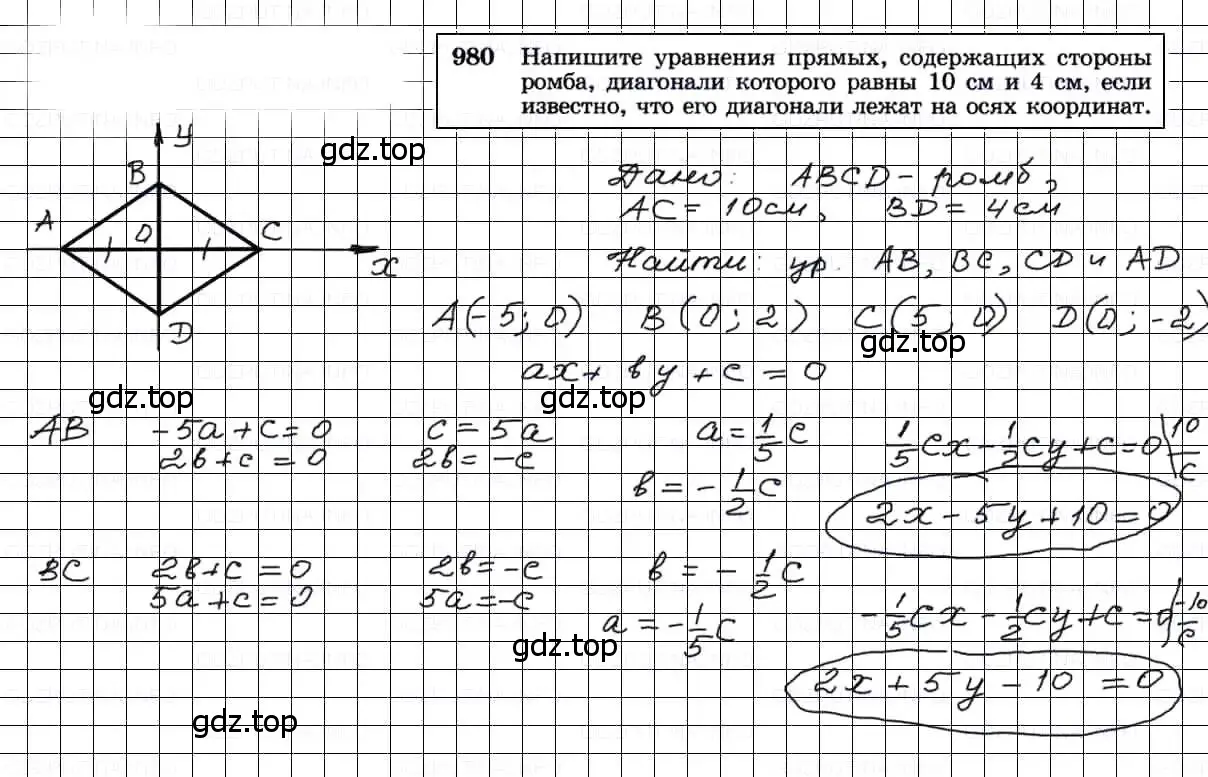 980 Напишите уравнения прямых, содержащих стороны
ромба, диагонали которого равны 10 см и 4 см, если
известно, что его диагонали лежат на осях координат.
y
gdz.top
B
A
O
C
x
D
Дано: ABCD - ромб,
AC = 10см, BD = 4см
Найти: ур. AB, BC, CD и AD
A(-5; 0) B(0; 2) C(5; 0) D(0; -2)
gdz.top
ax + by + c = 0
gdz.top gdz.top
AB -5a + c = 0 c = 5a a = 1/5 c 1/5 cx - 1/2 cy + c = 0 | 10/c
2b + c = 0 2b = -c b = - 1/2 c
2x - 5y + 10 = 0
BC 2b + c = 0 2b = -c b = - 1/2 c
5a + c = 0 5a = -c a = - 1/5 c - 1/5 cx - 1/2 cy + c = 0 | -10/c
gdz.top
2x + 5y - 10 = 0
gdz.top